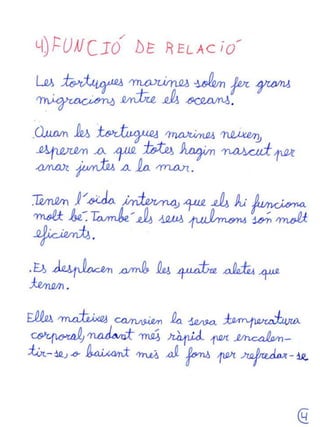 4) FUNCIÓ DE RELACIÓ
Les tortugues marines solen fer grans
migracions entre els oceans.
.Quan les tortugues marines neixen,
esperen a que totes hagin nascut per
anar juntes a la mar.
.Tenen l'oida interna, que els hi funciona
molt bé. També els seus pulmons són molt
eficients.
.Es desplacen amb les quatre aletes que
tenen.
Elles mateixes canvien la seva temperatura
corporal, nadant més ràpid per encalen-
tir-se, o baixant més al fons per refredar-se
4